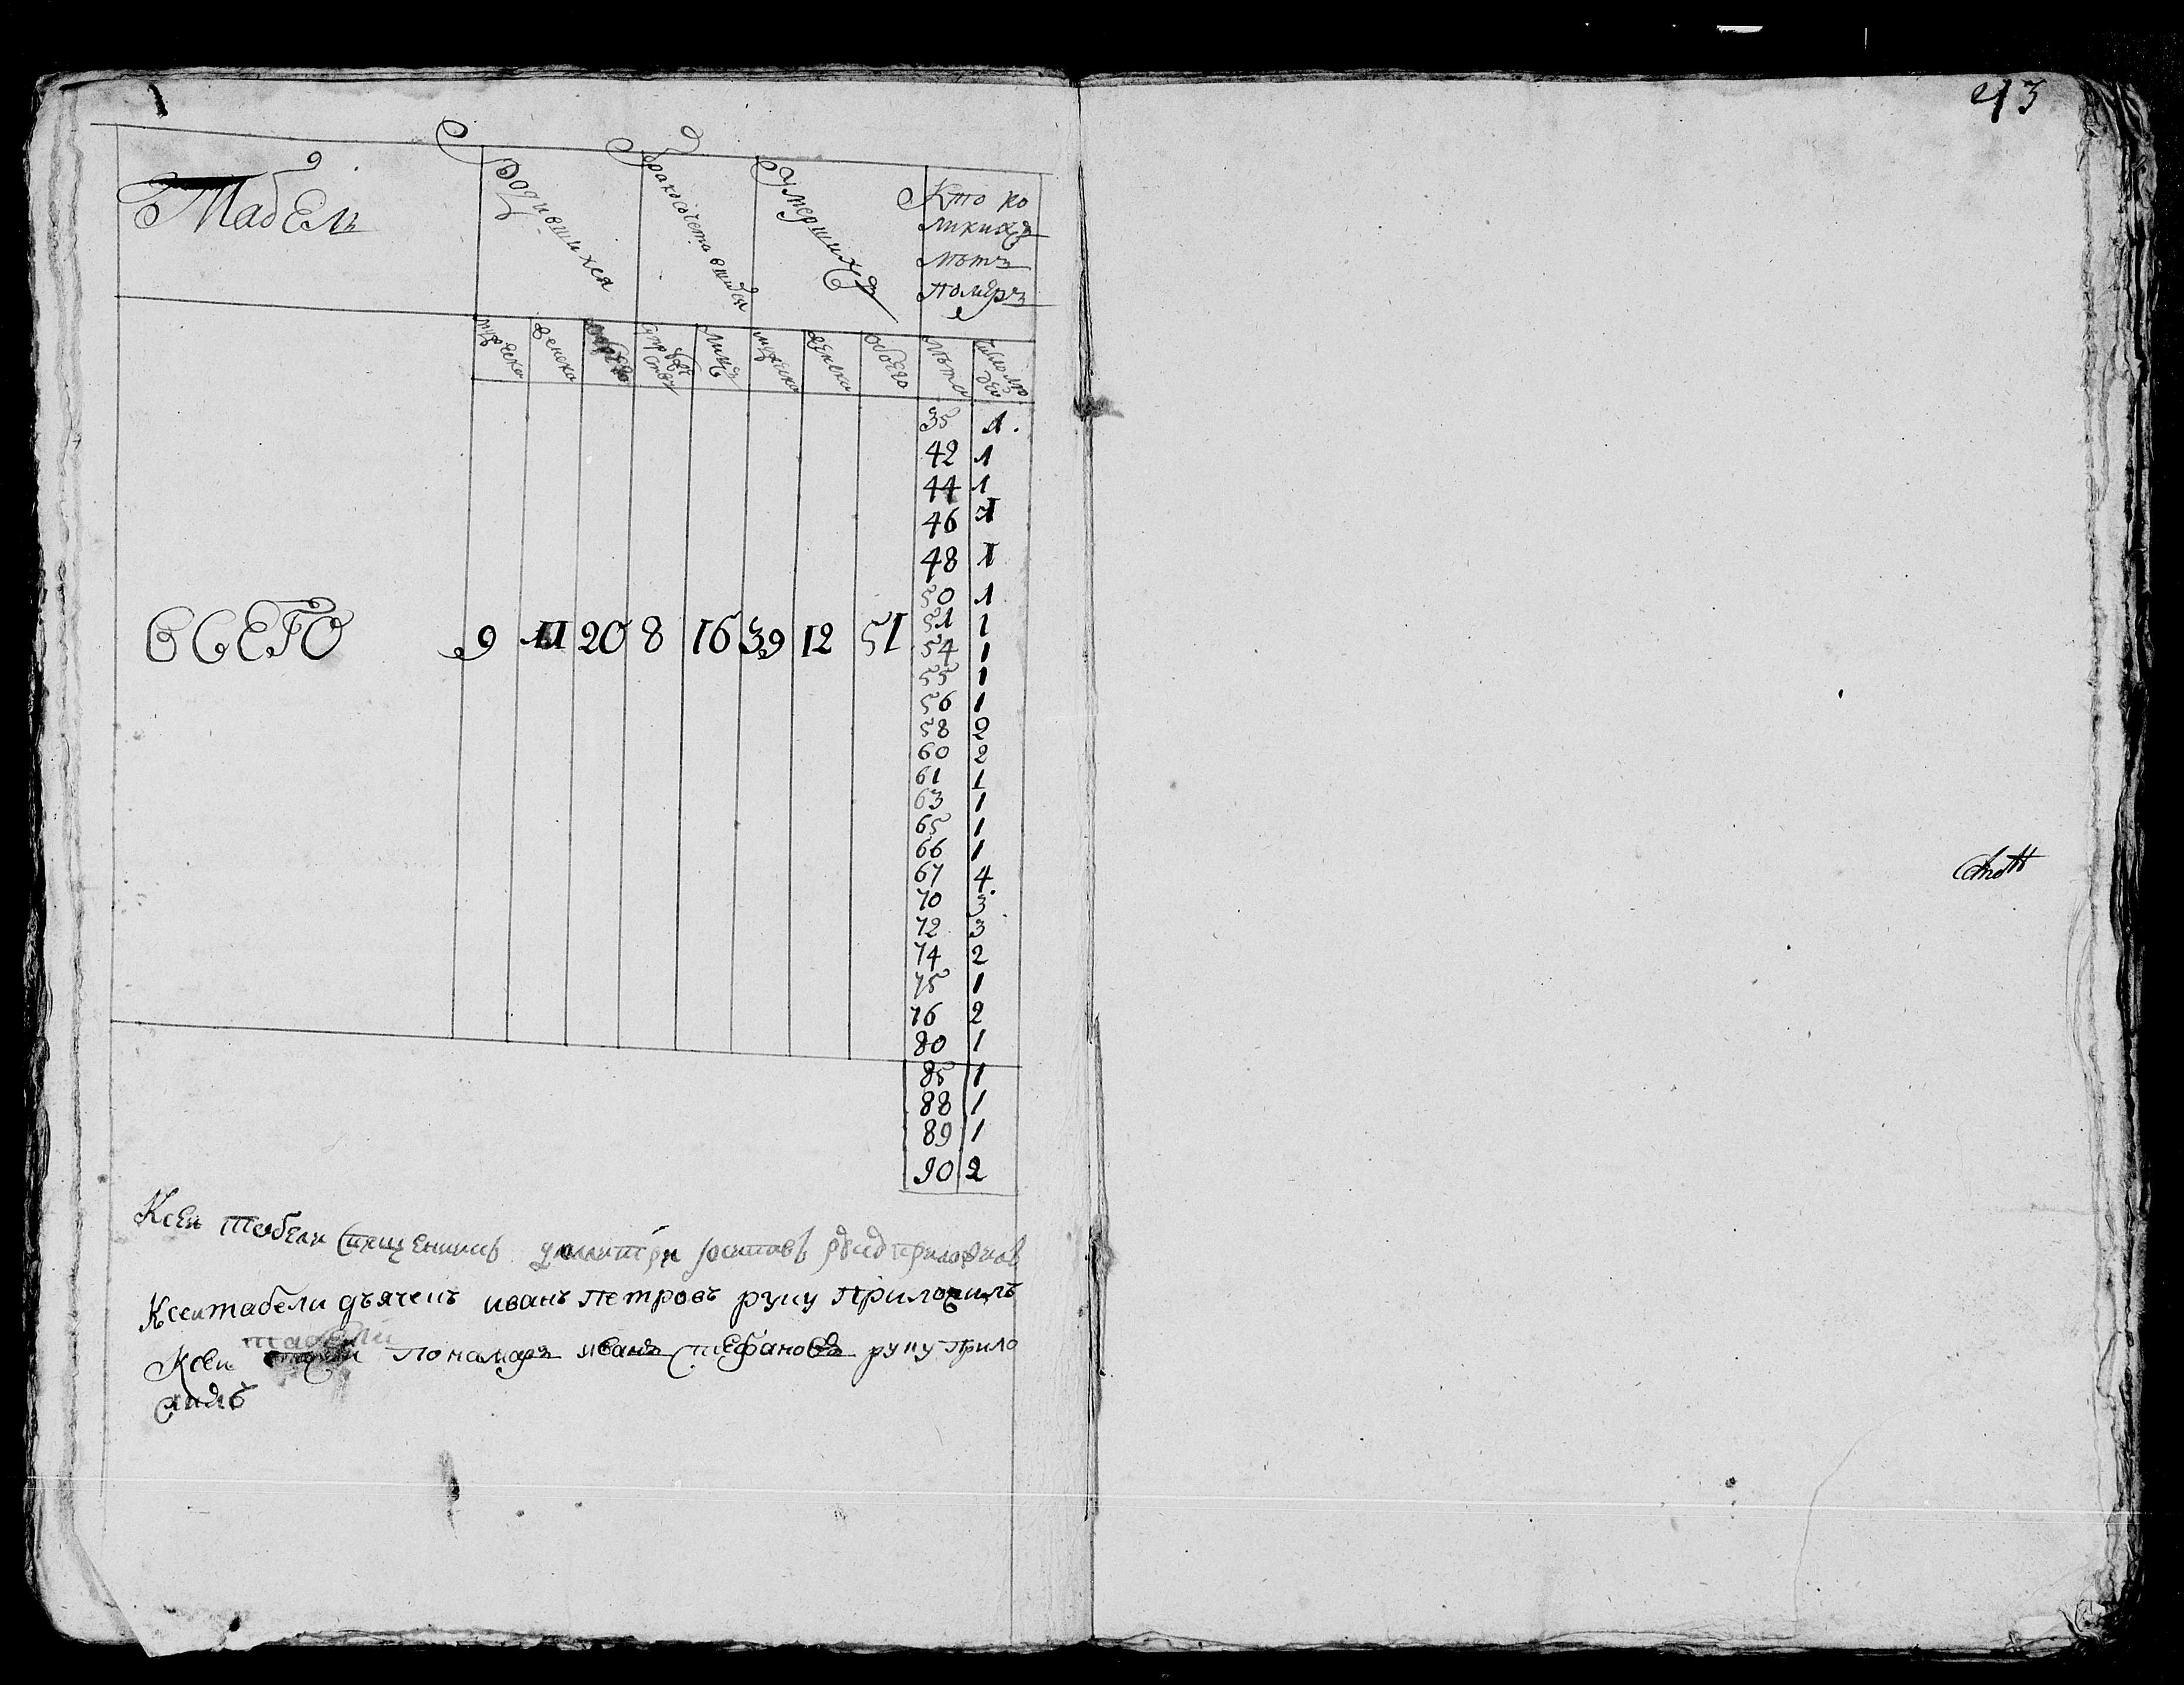 43
Табель
Родившихся
Бракосочетавшихся
Умершихъ
Кто ко
ликихъ
лѣтъ
померъ
мужеска
женска
обоего
супружествъ
лицъ
мужеска
женска
обоего
лѣта
число людей
35 1
42 1
44 1
46 1
48 1
50 1
51 1
ВСЕГО 9 11 20 8 16 39 12 51
54 1
55 1
56 1
58 2
60 2
61 1
63 1
65 1
66 1
67 4
70 3
72 3
74 2
75 1
76 2
80 1
85 1
88 1
89 1
90 2
Ксеи табели священникъ димитри руку приложилъ
Ксеи табели дьячекъ иванъ петровъ руку приложилъ
табели
Ксеи пономарь иванъ стефановъ руку прило
жилъ